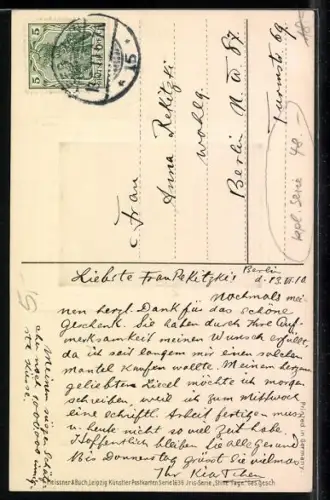 5
5
15
Frau
Anna Rekitzki
wohlg.
Berlin N.W. 87
Turmstr. 69.
kpl. Serie 48.-
Berlin
d. 13.VI.10
Liebste Frau Rekitzki!
Nochmals mei-
nen herzl. Dank für das schöne
Geschenk. Sie haben durch Ihre Auf-
merksamkeit meinen Wunsch erfüllt,
da ich seit langem mir einen solchen
Mantel kaufen wollte. Meinem herzgn.
geliebten möchte ich morgen
schreiben, weil ich zum Mittwoch
eine schriftl. Arbeit fertigen muss
u. heute nicht so viel Zeit habe.
Hoffentlich bleiben Sie alle Gesund
Bis Donnerstag grüsst Sie vielmals
Ihr
Meinem süssen
noch 1000,000
Küsse.
Printed in Germany
Meissner & Buch, Leipzig Künstler-Postkarten Serie 1639. Iris-Serie, Ges. gesch.